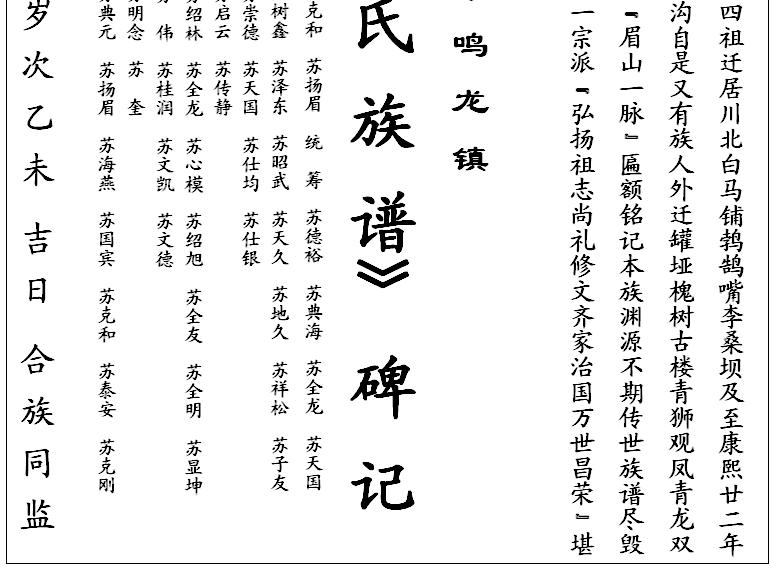 四祖迁居川北白马铺鹁鹄嘴李桑坝及至康熙廿二年
沟自是又有族人外迁罐垭槐树古楼青狮观凤青龙双
『眉山一脉』匾额铭记本族渊源不期传世族谱尽毁
一宗派『弘扬祖志尚礼修文齐家治国万世昌荣』堪
鸣龙镇
氏族谱》碑记
克和 苏扬眉 统筹 苏德裕 苏典海 苏全龙 苏天国
树鑫 苏泽东 苏昭武 苏天久 苏地久 苏祥松 苏子友
崇德 苏天国 苏仕均 苏仕银
启云 苏传静
绍林 苏全龙 苏心模 苏绍旭 苏全友 苏全明 苏显坤
伟 苏桂润 苏文凯 苏文德
明念 苏奎
典元 苏扬眉 苏海燕 苏国宾 苏克和 苏泰安 苏克刚
岁次乙未 吉日 合族同监